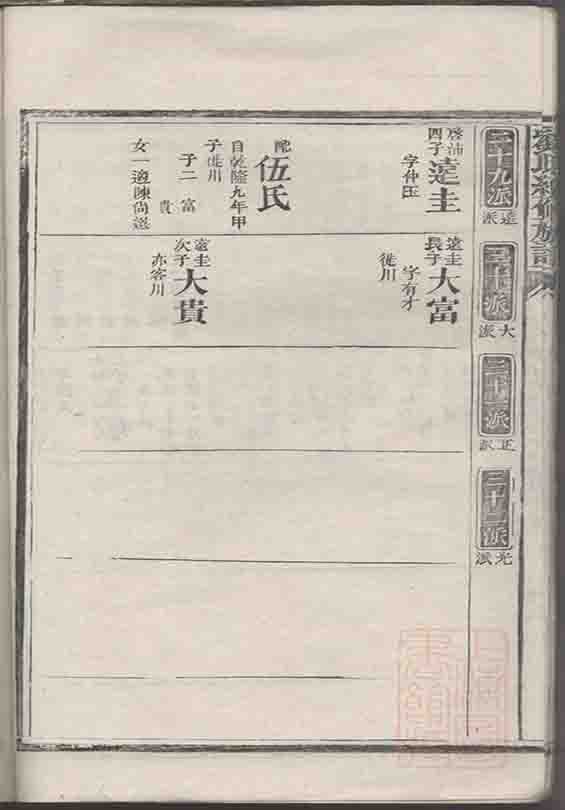 二十九派
遠派
三十派
大派
三十一派
正派
三十二派
光派
四子遠圭
字仲玉
配伍氏
自乾隆九年甲
子徙川
子二 富
貴
女一適陳尚
遠圭
長子大富
字有才
徙川
遠圭
次子大貴
亦客川